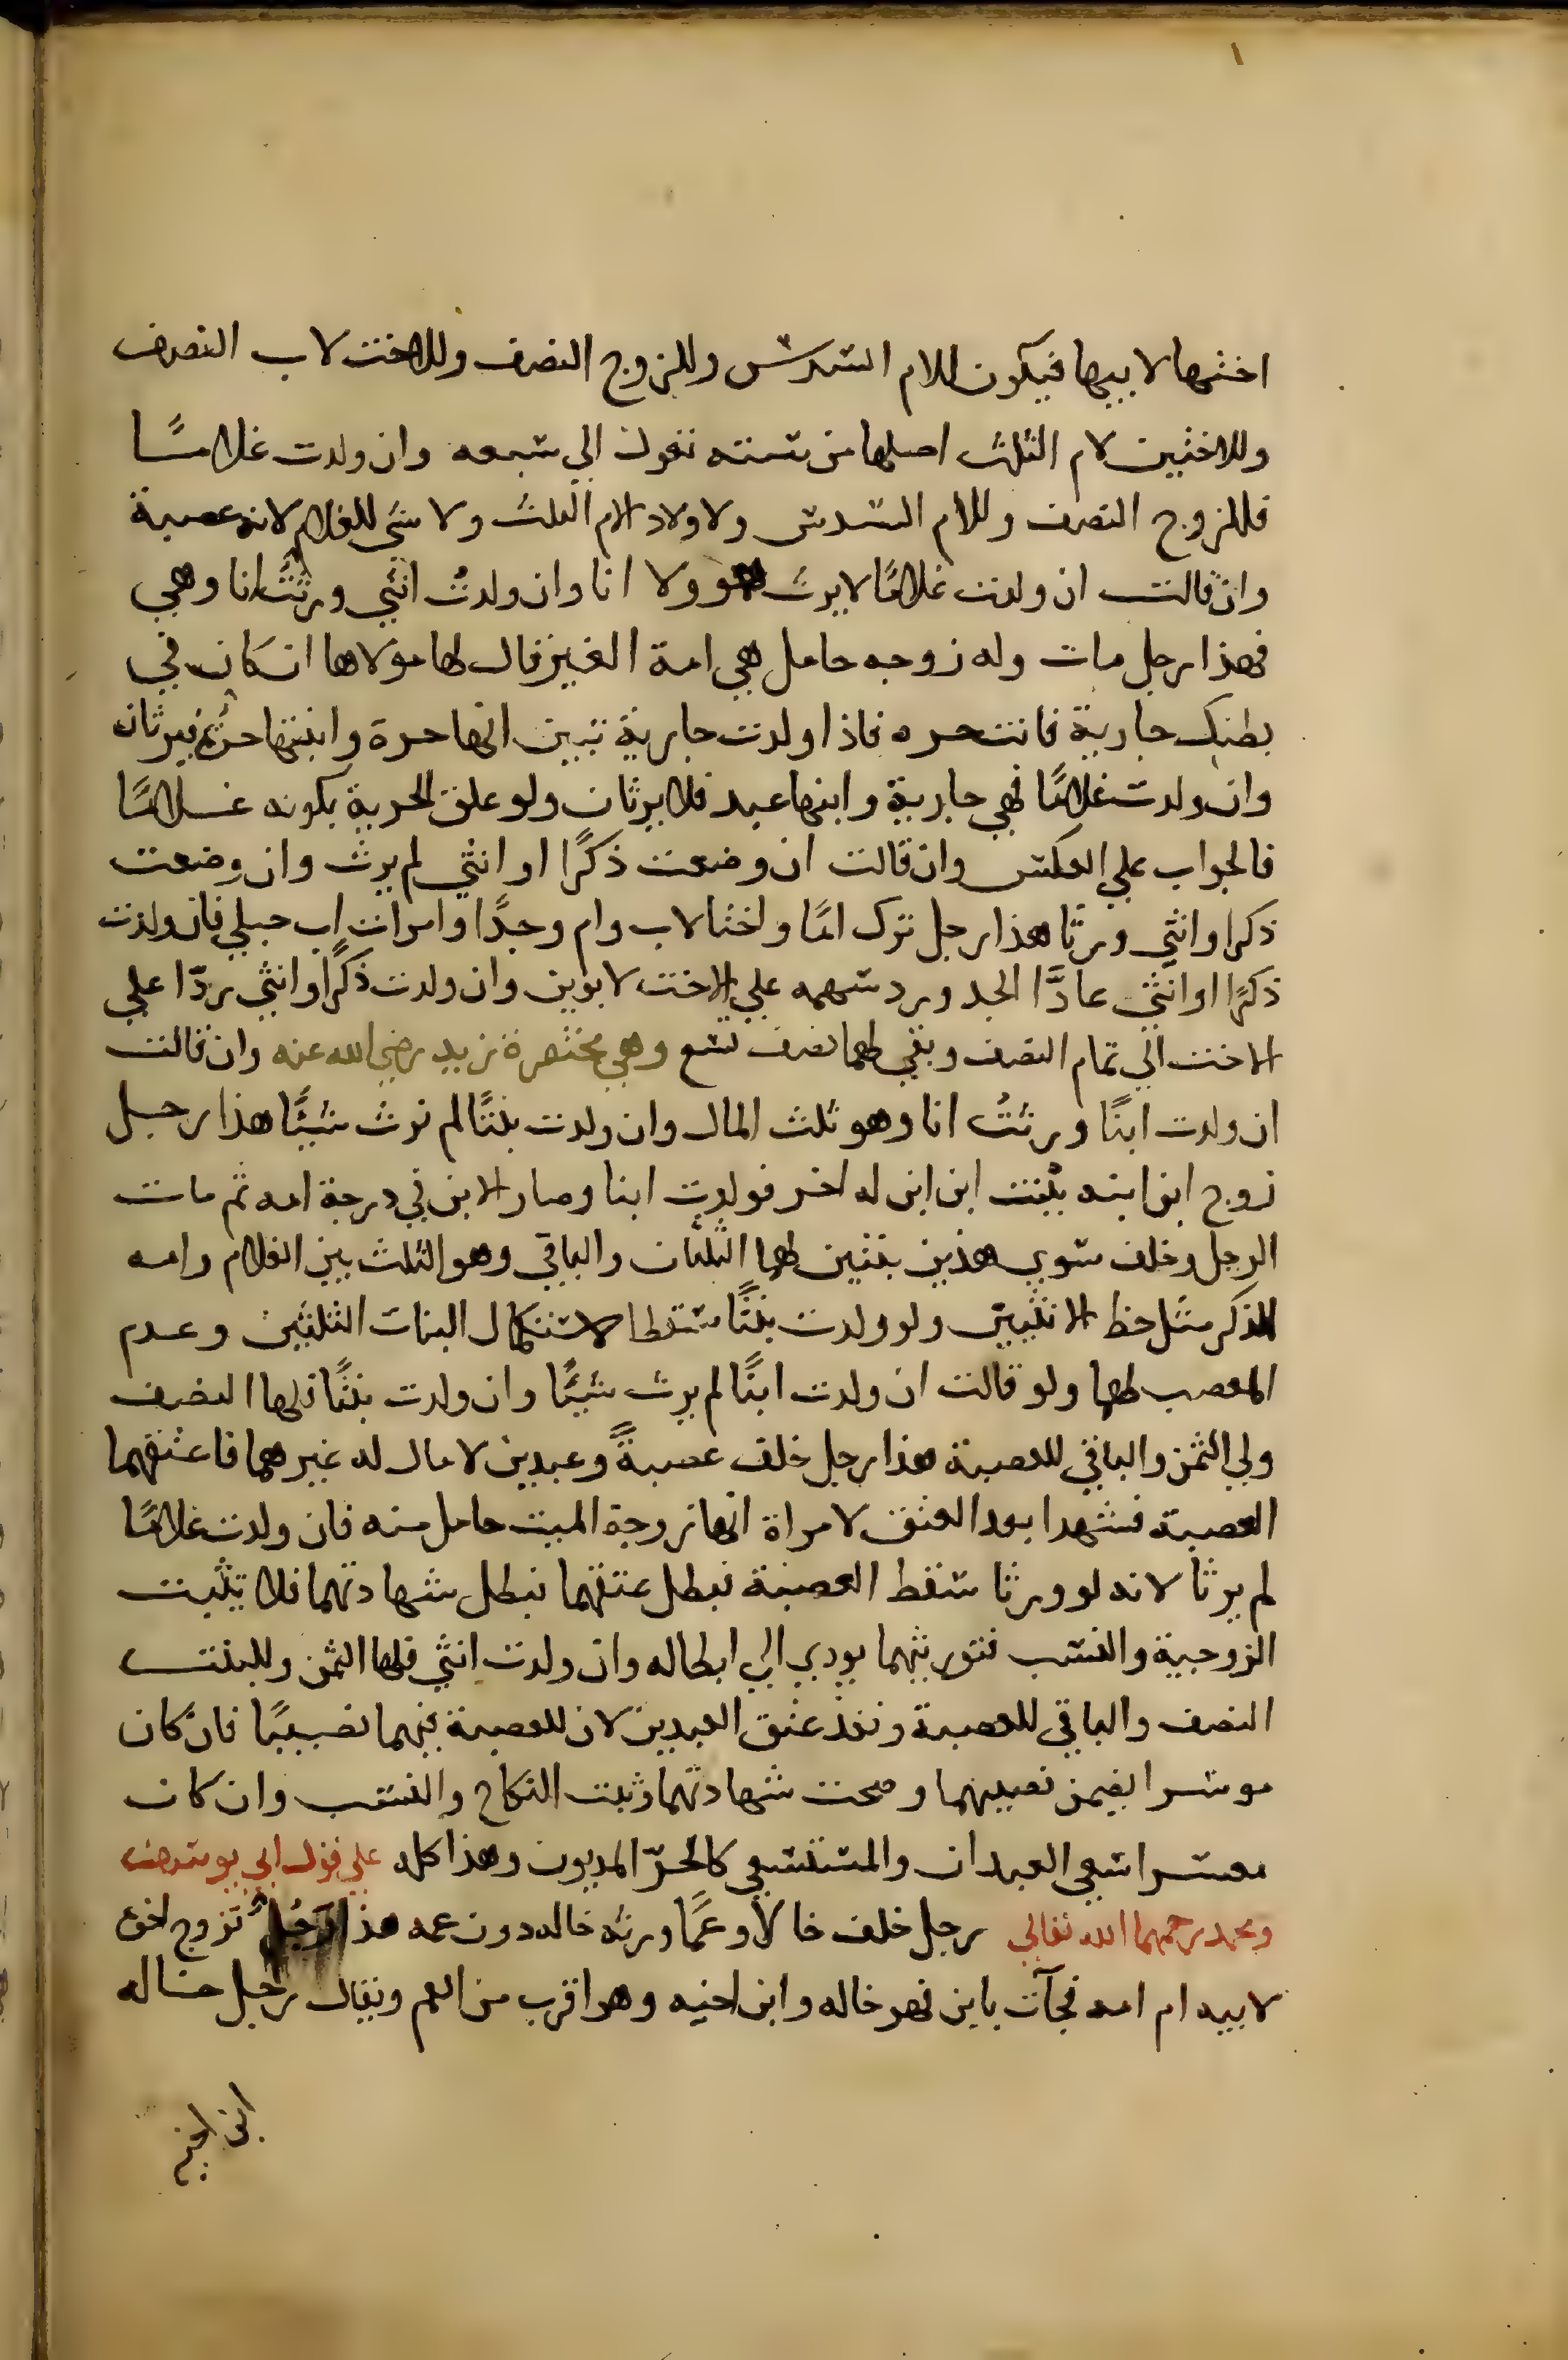 ١
اختها لابيها فيكون للام السدس وللزوج النصف وللاخت لاب النصف
وللاختين لام الثلث اصلها من ستة تعول الي تسعه وان ولدت غلامًا
فللزوج النصف وللام السدس ولاولاد الام الثلث ولا شي للغلام لانه عصبة
وان قالت ان ولدت غلامًا لا يرث هو ولا انا وان ولدتُ انثي ورثتُ انا وهي
فهذا رجل مات وله زوجه حامل هي امة الغير قال لها مولاها ان كان في
بطنك جارية فانت حره فاذا ولدت جارية تبين انها حرة وابنتها حرة فيرثان
وان ولدت غلامًا فهي جارية وابنها عبد فلا يرثان ولو علق الحرية بكونه غلامًا
فالجواب علي العكس وان قالت ان وضعت ذكرًا او انثي لم يرث وان وضعت
ذكرا وانثي ورثا هذا رجل ترك امًا واختا لاب وام وجدًا وامرات اب حبلي فان ولدت
ذكرًا او انثي عادَّا الجد ورد سهمه علي الاخت لابوين وان ولدت ذكرًا وانثي ردّا علي
الاخت الي تمام النصف وبقي لهما نصف تسع وهي مختصرة زيد رضي الله عنه وان قالت
ان ولدت ابنًا ورثتُ انا وهو ثلث المال وان ولدت بنتًا لم نرث شيئًا هذا رجل
زوج ابن ابنه ببنت ابن ابن له اخر فولدت ابنا وصار الابن في درجة امه ثم مات
الرجل وخلف سوي هذين بنتين لهما الثلثان والباقي وهو الثلث بين الغلام وامه
للذكر مثل حظ الانثيين ولو ولدت بنتًا سقطا لاستكمال البنات الثلثين وعدم
المعصب لهما ولو قالت ان ولدت ابنًا لم يرث شيئًا وان ولدت بنتًا فلها النصف
ولي الثمن والباقي للعصبة هذا رجل خلف عصبةً وعبدين لا مال له غيرهما فاعتقهما
العصبة فشهدا بعد العتق لامراة انها زوجة الميت حامل منه فان ولدت غلامًا
لم يرثا لانه لو ورثا سقط العصبة فبطل عتقهما فبطل شهادتهما فلا يثبت
الزوجية والنسب فتوريثهما يودي الي ابطاله وان ولدت انثي فلها الثمن وللبنت
النصف والباقي للعصبة ونفذ عتق العبدين لان للعصبة فيهما نصيبًا فان كان
موسرا يضمن نصيبهما وصحت شهادتهما وثبت النكاح والنسب وان كان
معسرا سعي العبدان والمستسعي كالحرّ المديون وهذا كله علي قول ابي يوسف
ومحمد رحمهما الله تعالي رجل خلف خالًا وعمًا ورثه خاله دون عمه هذا رجل تزوج اخوه
لابيه ام امه فجآت بابن فهو خاله وابن اخيه وهو اقرب من العم ويقال رجل خاله
ابن اخيه